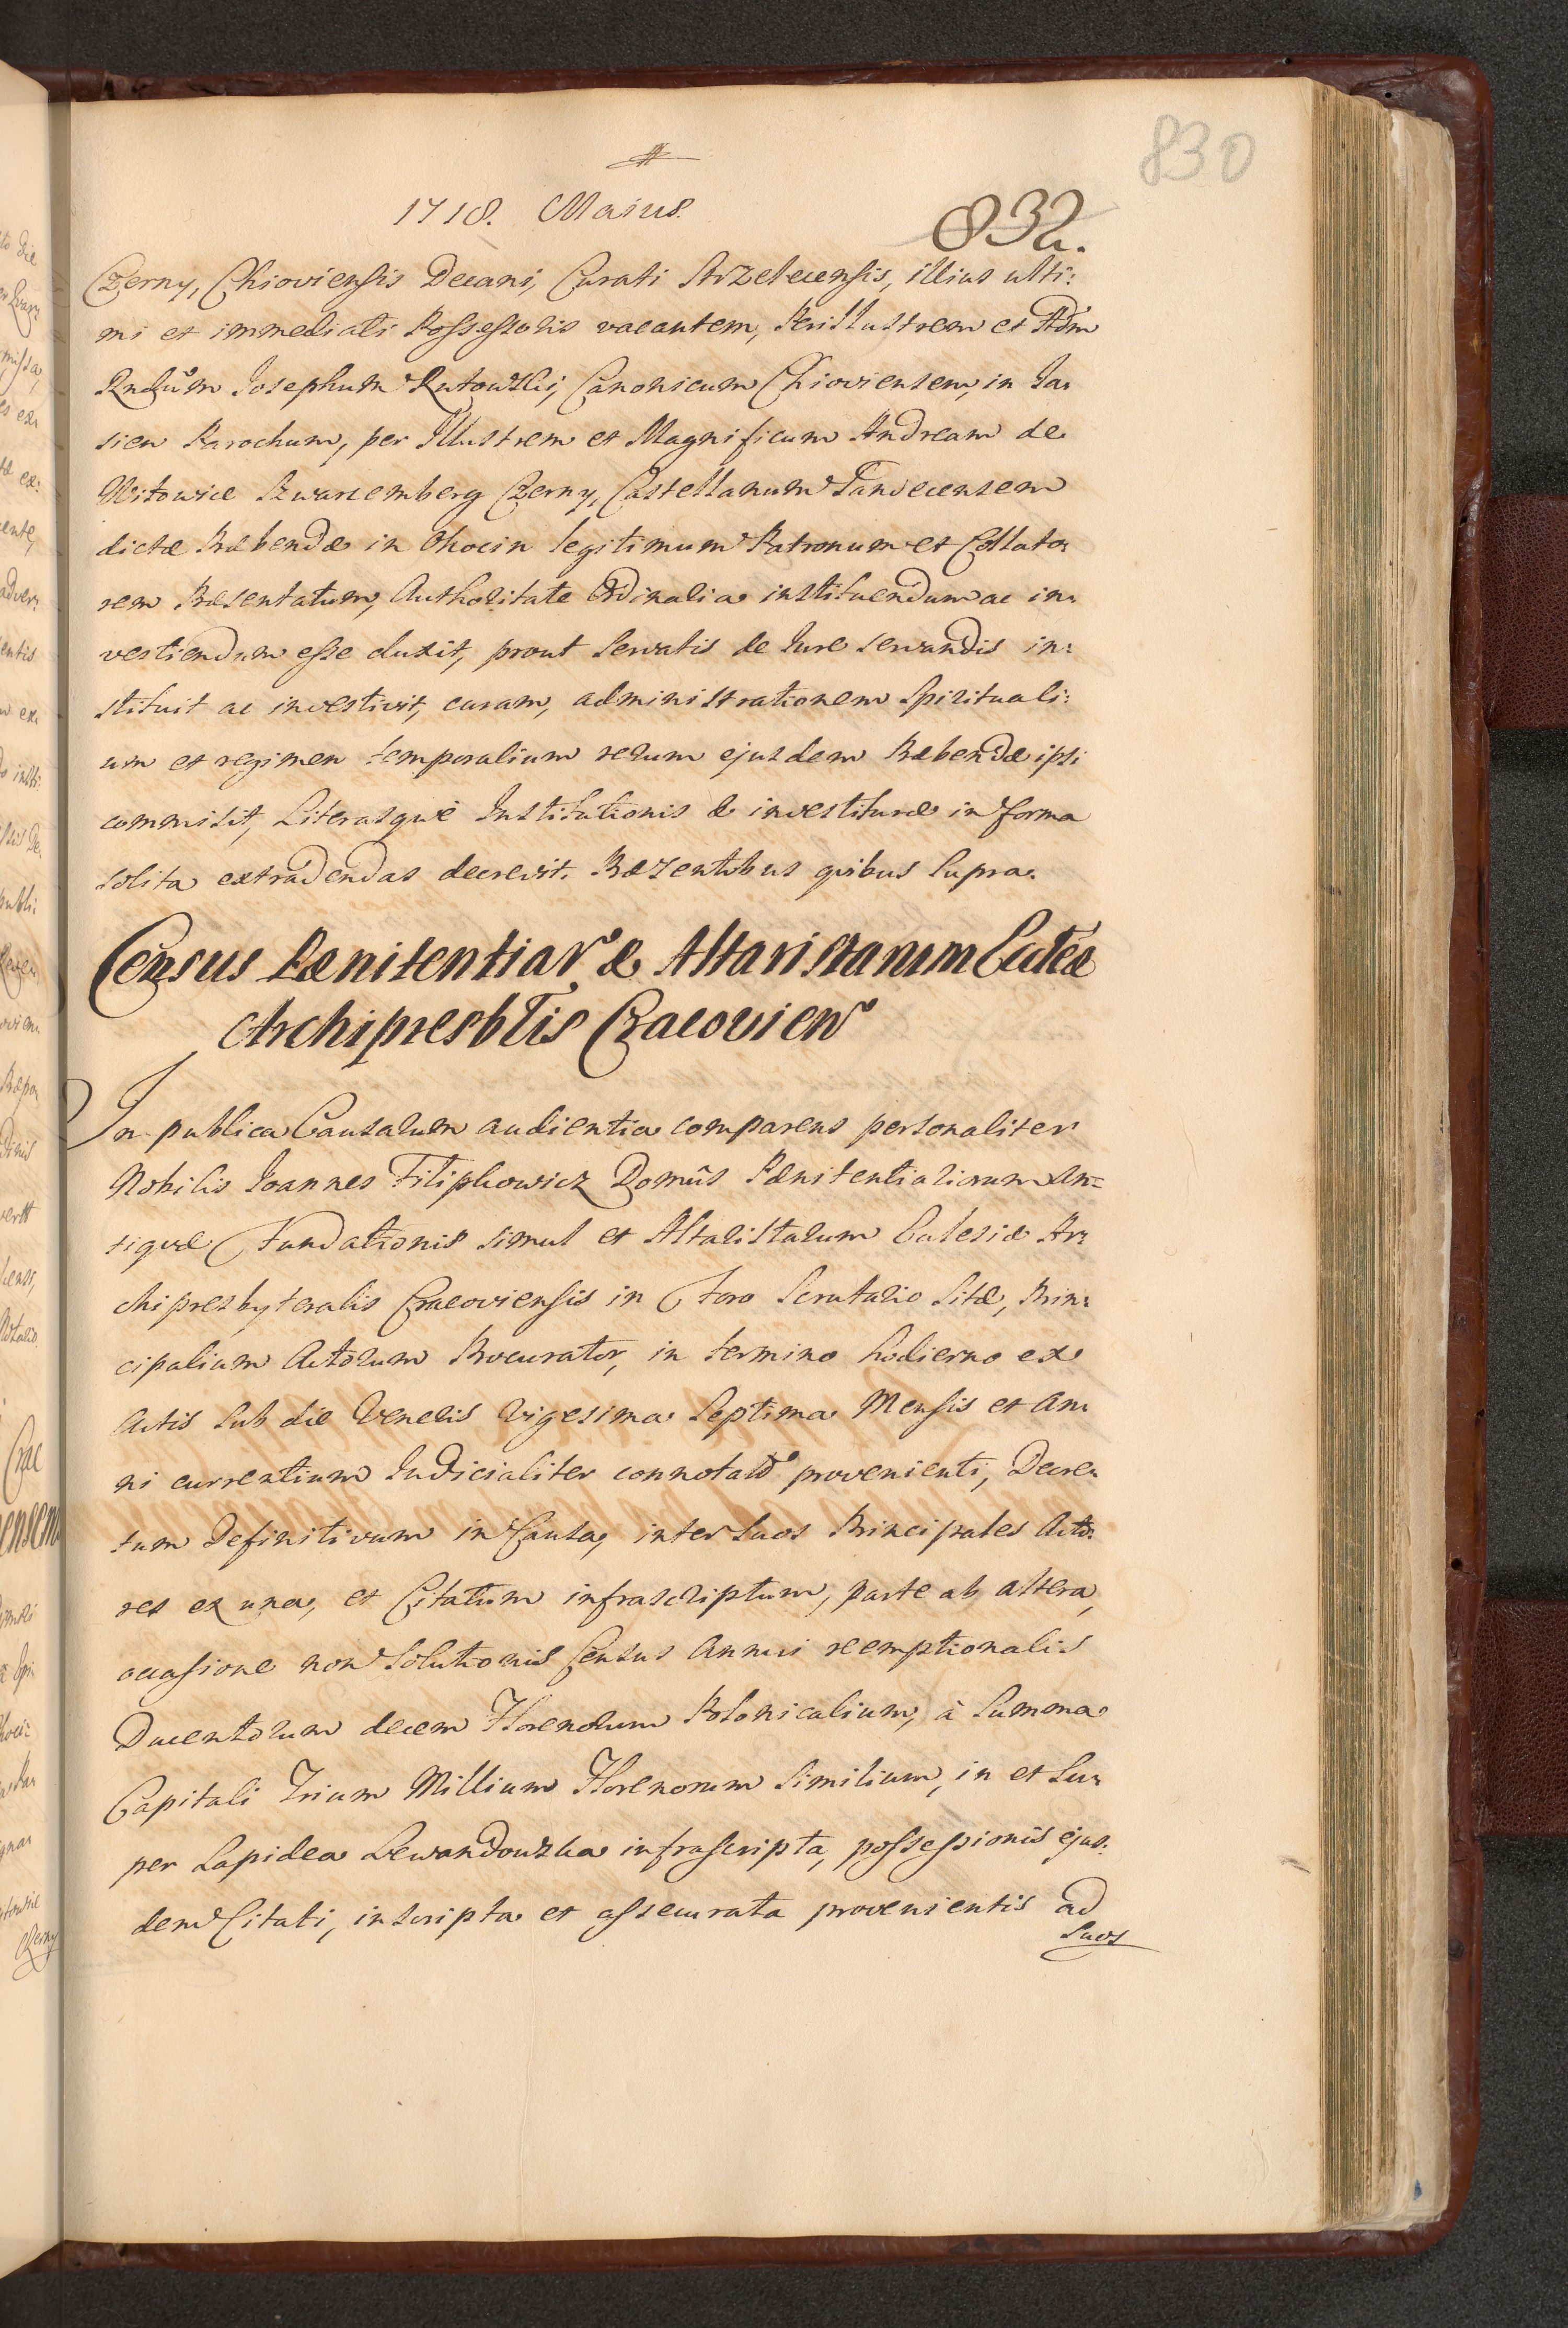 830
1718. Maius.
832.
Czerny, Chioviensis Decani, Curati Strzelecensis, illius ulti:
mi et immediati Possessoris vacantem, Perillustrem et Adm
Rndum Josephum Rutowski, Canonicum Chioviensem, in Ja:
sien Parochum, per Illustrem et Magnificum Andream de
Witowice Szwarcemberg Czerny, Castellanum Sandecensem
dictæ Præbendæ in Okocin legitimum Patronum et Collato:
rem Præsentatum, Authoritate Ordinaria instituendum ac in:
vestiendum esse duxit, prout servatis de Jure servandis in:
stituit ac investivit, curam, administrationem Spirituali:
um et regimen temporalium rerum ejusdem Præbendæ ipsi
commisit, Literasque Institutionis & investituræ in forma
solita extradendas decrevit. Præsentibus quibus supra.
Census Pænitentiar & Altaristarum Eccleæ
Archipresbtlis Cracovien
In publica Causarum audientia comparens personaliter
Nobilis Joannes Filipkowicz Domus Pænitentiariorum An=
tiquæ Fundationis simul et Altaristarum Ecclesiæ Ar:
chipresbyteralis Cracoviensis in Foro Scrutario Sitæ, Prin:
cipalium Actorum Procurator, in termino hodierno ex
Actis sub die Veneris Vigesima Septima Mensis et An:
ni currentium Judicialiter connotato provenienti, Decre:
tum Definitivum in Causa, inter suos Principales Acto:
res ex una, et Citatum infrascriptum, parte ab altera,
occasione non solutionis Census Annui reemptionalis
Ducentorum decem Florenorum Polonicalium, à Summa
Capitali Trium Millium Florenorum Similium, in et Su:
per Lapidea Lewandowska infrascripta, possessionis ejus:
dem Citati, inscripta et assecurata provenientis ad
suos